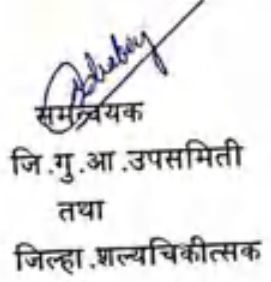 समन्वयक
जि.गु.आ.उपसमिती
तथा
जिल्हा.शल्यचिकीत्सक